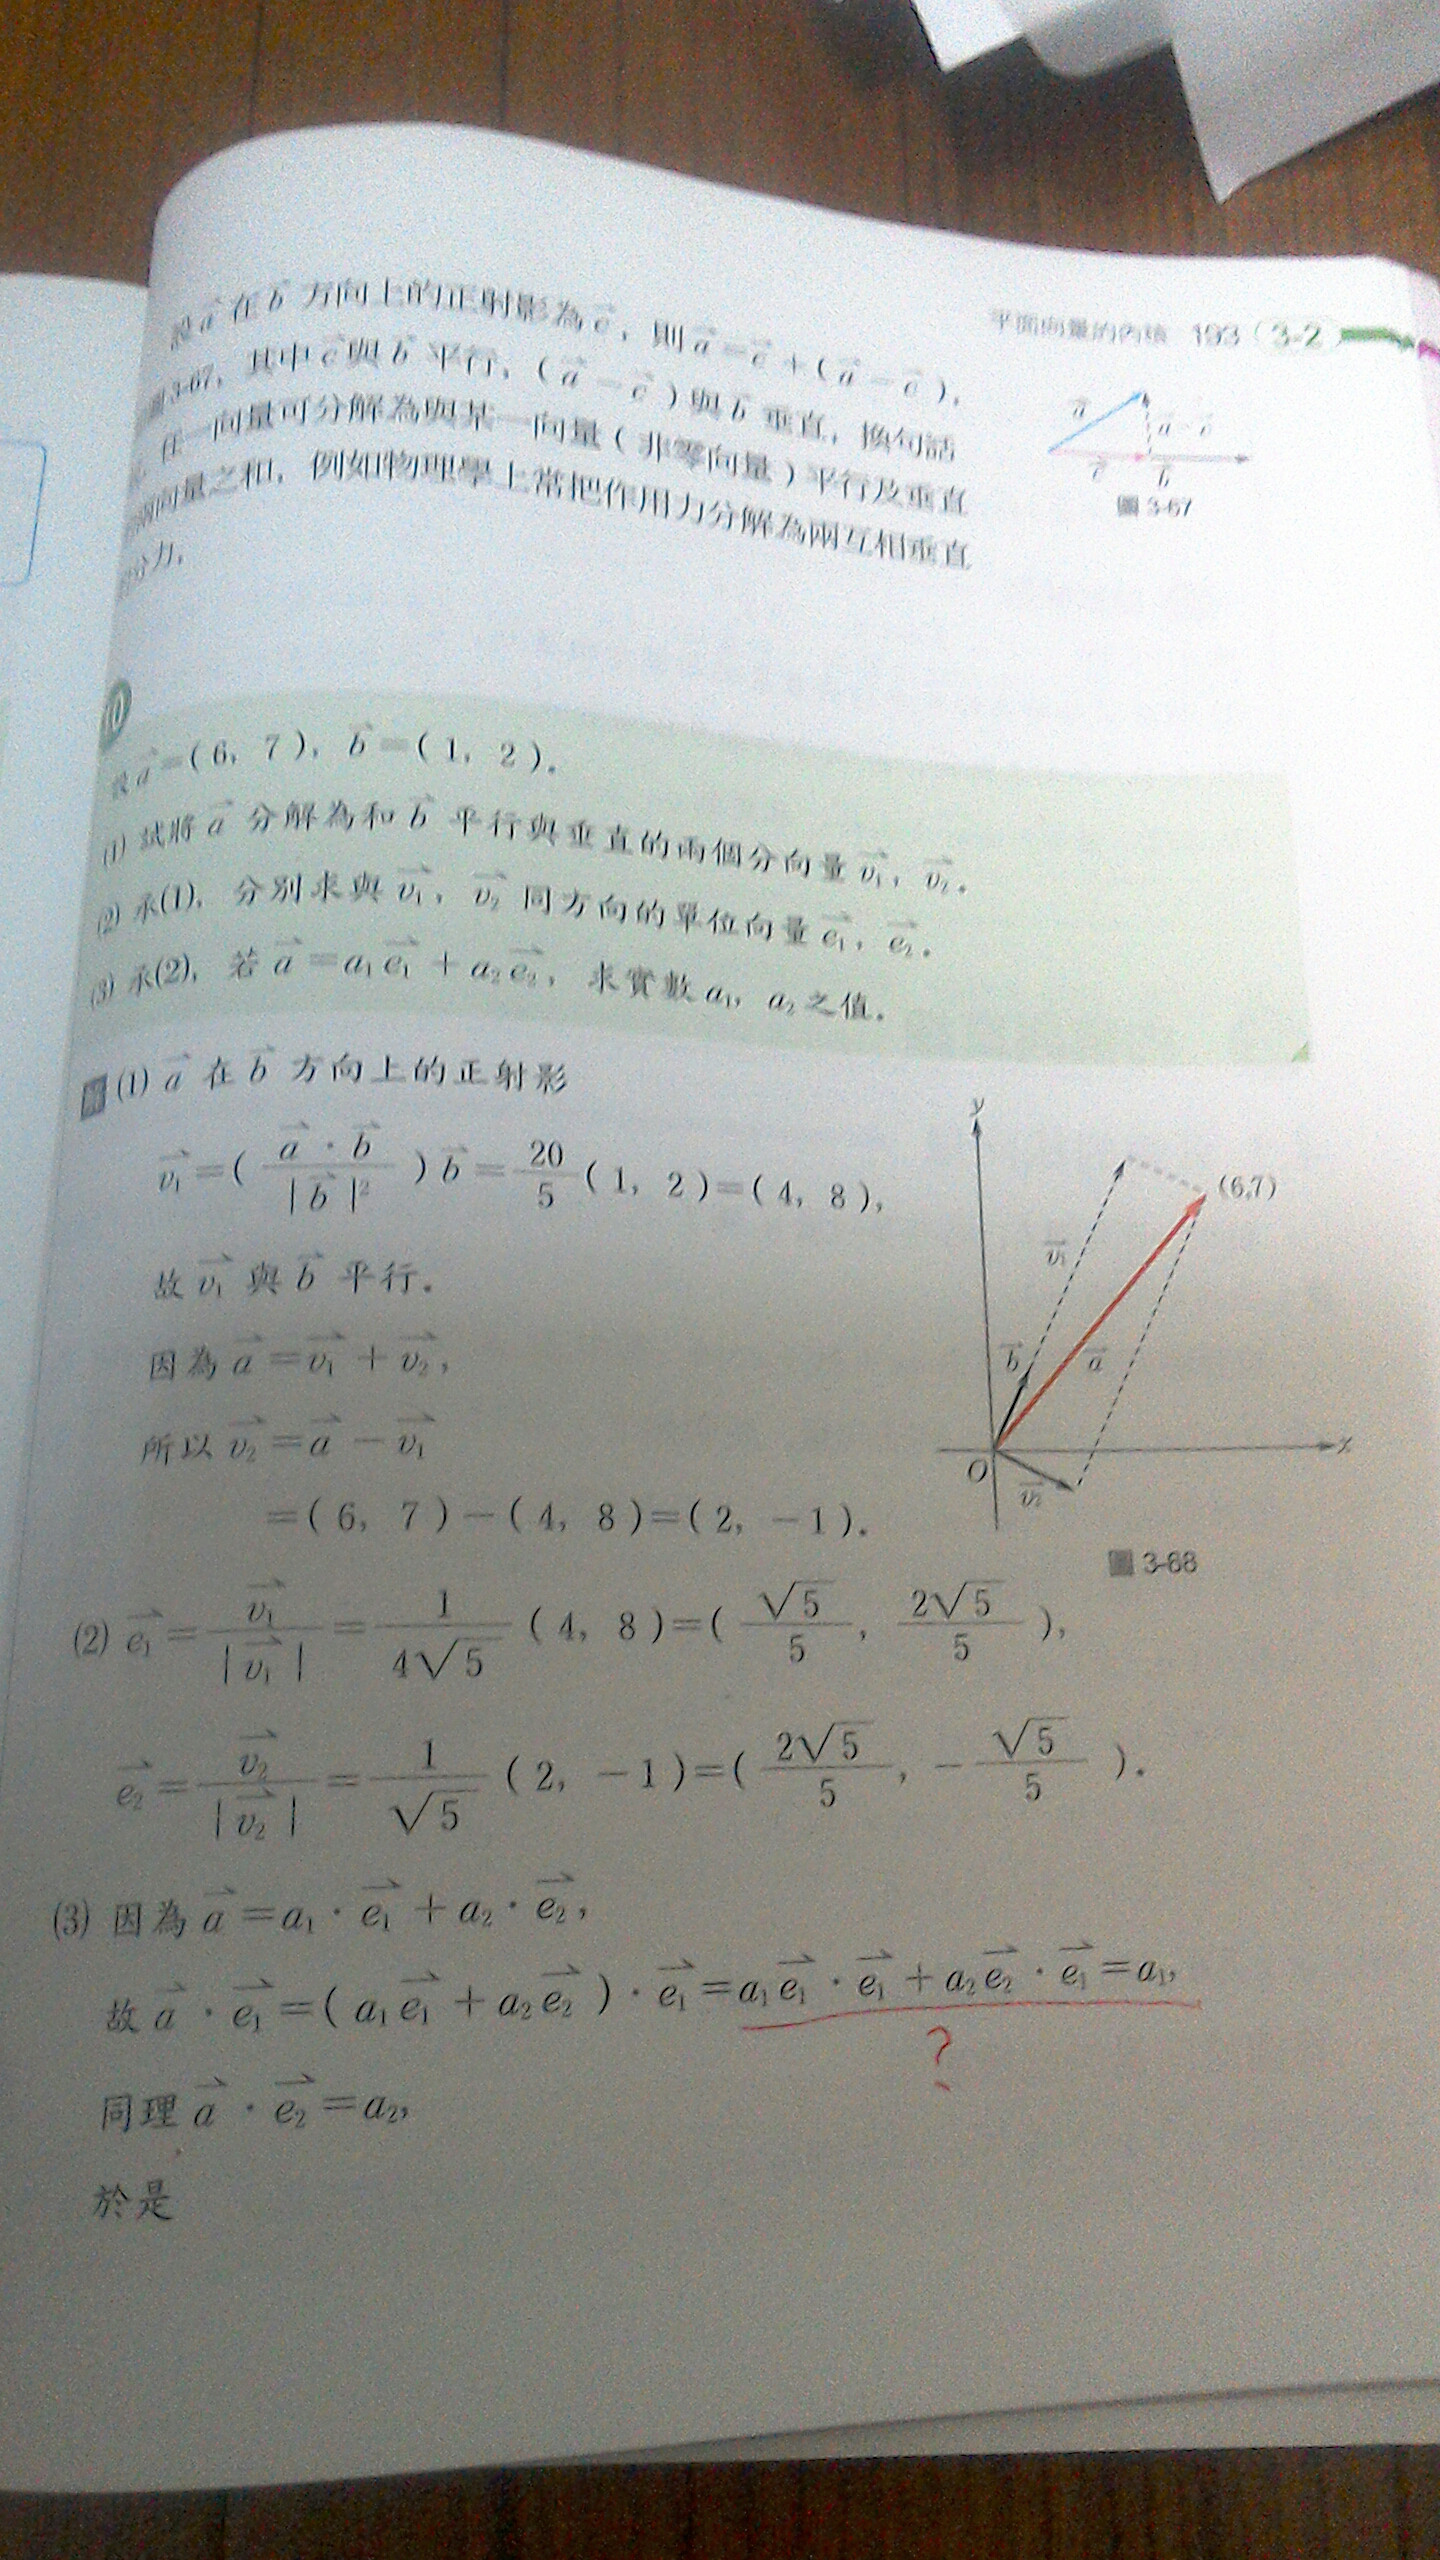 平面向量的內積 193 (3-2)
設a在b方向上的正射影為c,則a=c+(a-c),
圖3-67,其中c與b平行,(a-c)與b垂直,換句話
任一向量可分解為與某一向量(非零向量)平行及垂直
兩向量之和,例如物理學上常把作用力分解為兩互相垂直
分力.
a
a-c
c
b
圖3-67
設a=(6,7),b=(1,2).
(1) 試將a分解為和b平行與垂直的兩個分向量v₁,v₂.
(2) 承(1),分別求與v₁,v₂同方向的單位向量e₁,e₂.
(3) 承(2),若a=a₁e₁+a₂e₂,求實數a₁,a₂之值.
(1) a在b方向上的正射影
v₁=(a·b/|b|²)b=20/5(1,2)=(4,8),
故v₁與b平行.
因為a=v₁+v₂,
所以v₂=a-v₁
=(6,7)-(4,8)=(2,-1).
y
(6,7)
v₁
b
a
O
x
v₂
圖3-68
(2) e₁=v₁/|v₁|=1/4√5(4,8)=(√5/5,2√5/5),
e₂=v₂/|v₂|=1/√5(2,-1)=(2√5/5,-√5/5).
(3) 因為a=a₁·e₁+a₂·e₂,
故a·e₁=(a₁e₁+a₂e₂)·e₁=a₁e₁·e₁+a₂e₂·e₁=a₁,
?
同理a·e₂=a₂,
於是